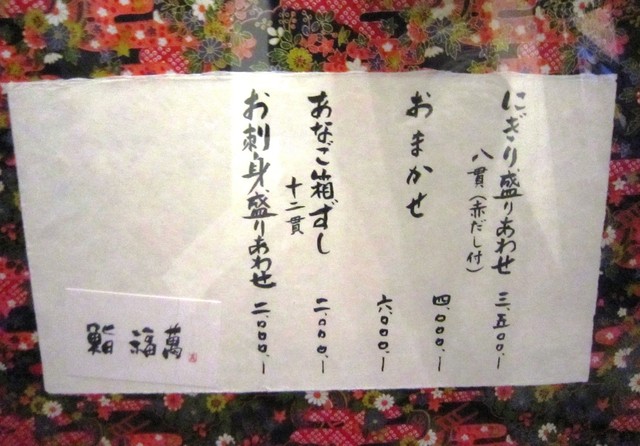 にぎり盛りあわせ 三、五〇〇、ー
八貫(赤だし付)
おまかせ 四、〇〇〇、ー
六、〇〇〇、ー
あなご箱ずし 二、〇〇〇、ー
十二貫
お刺身盛りあわせ 二、〇〇〇、ー
鮨 福萬